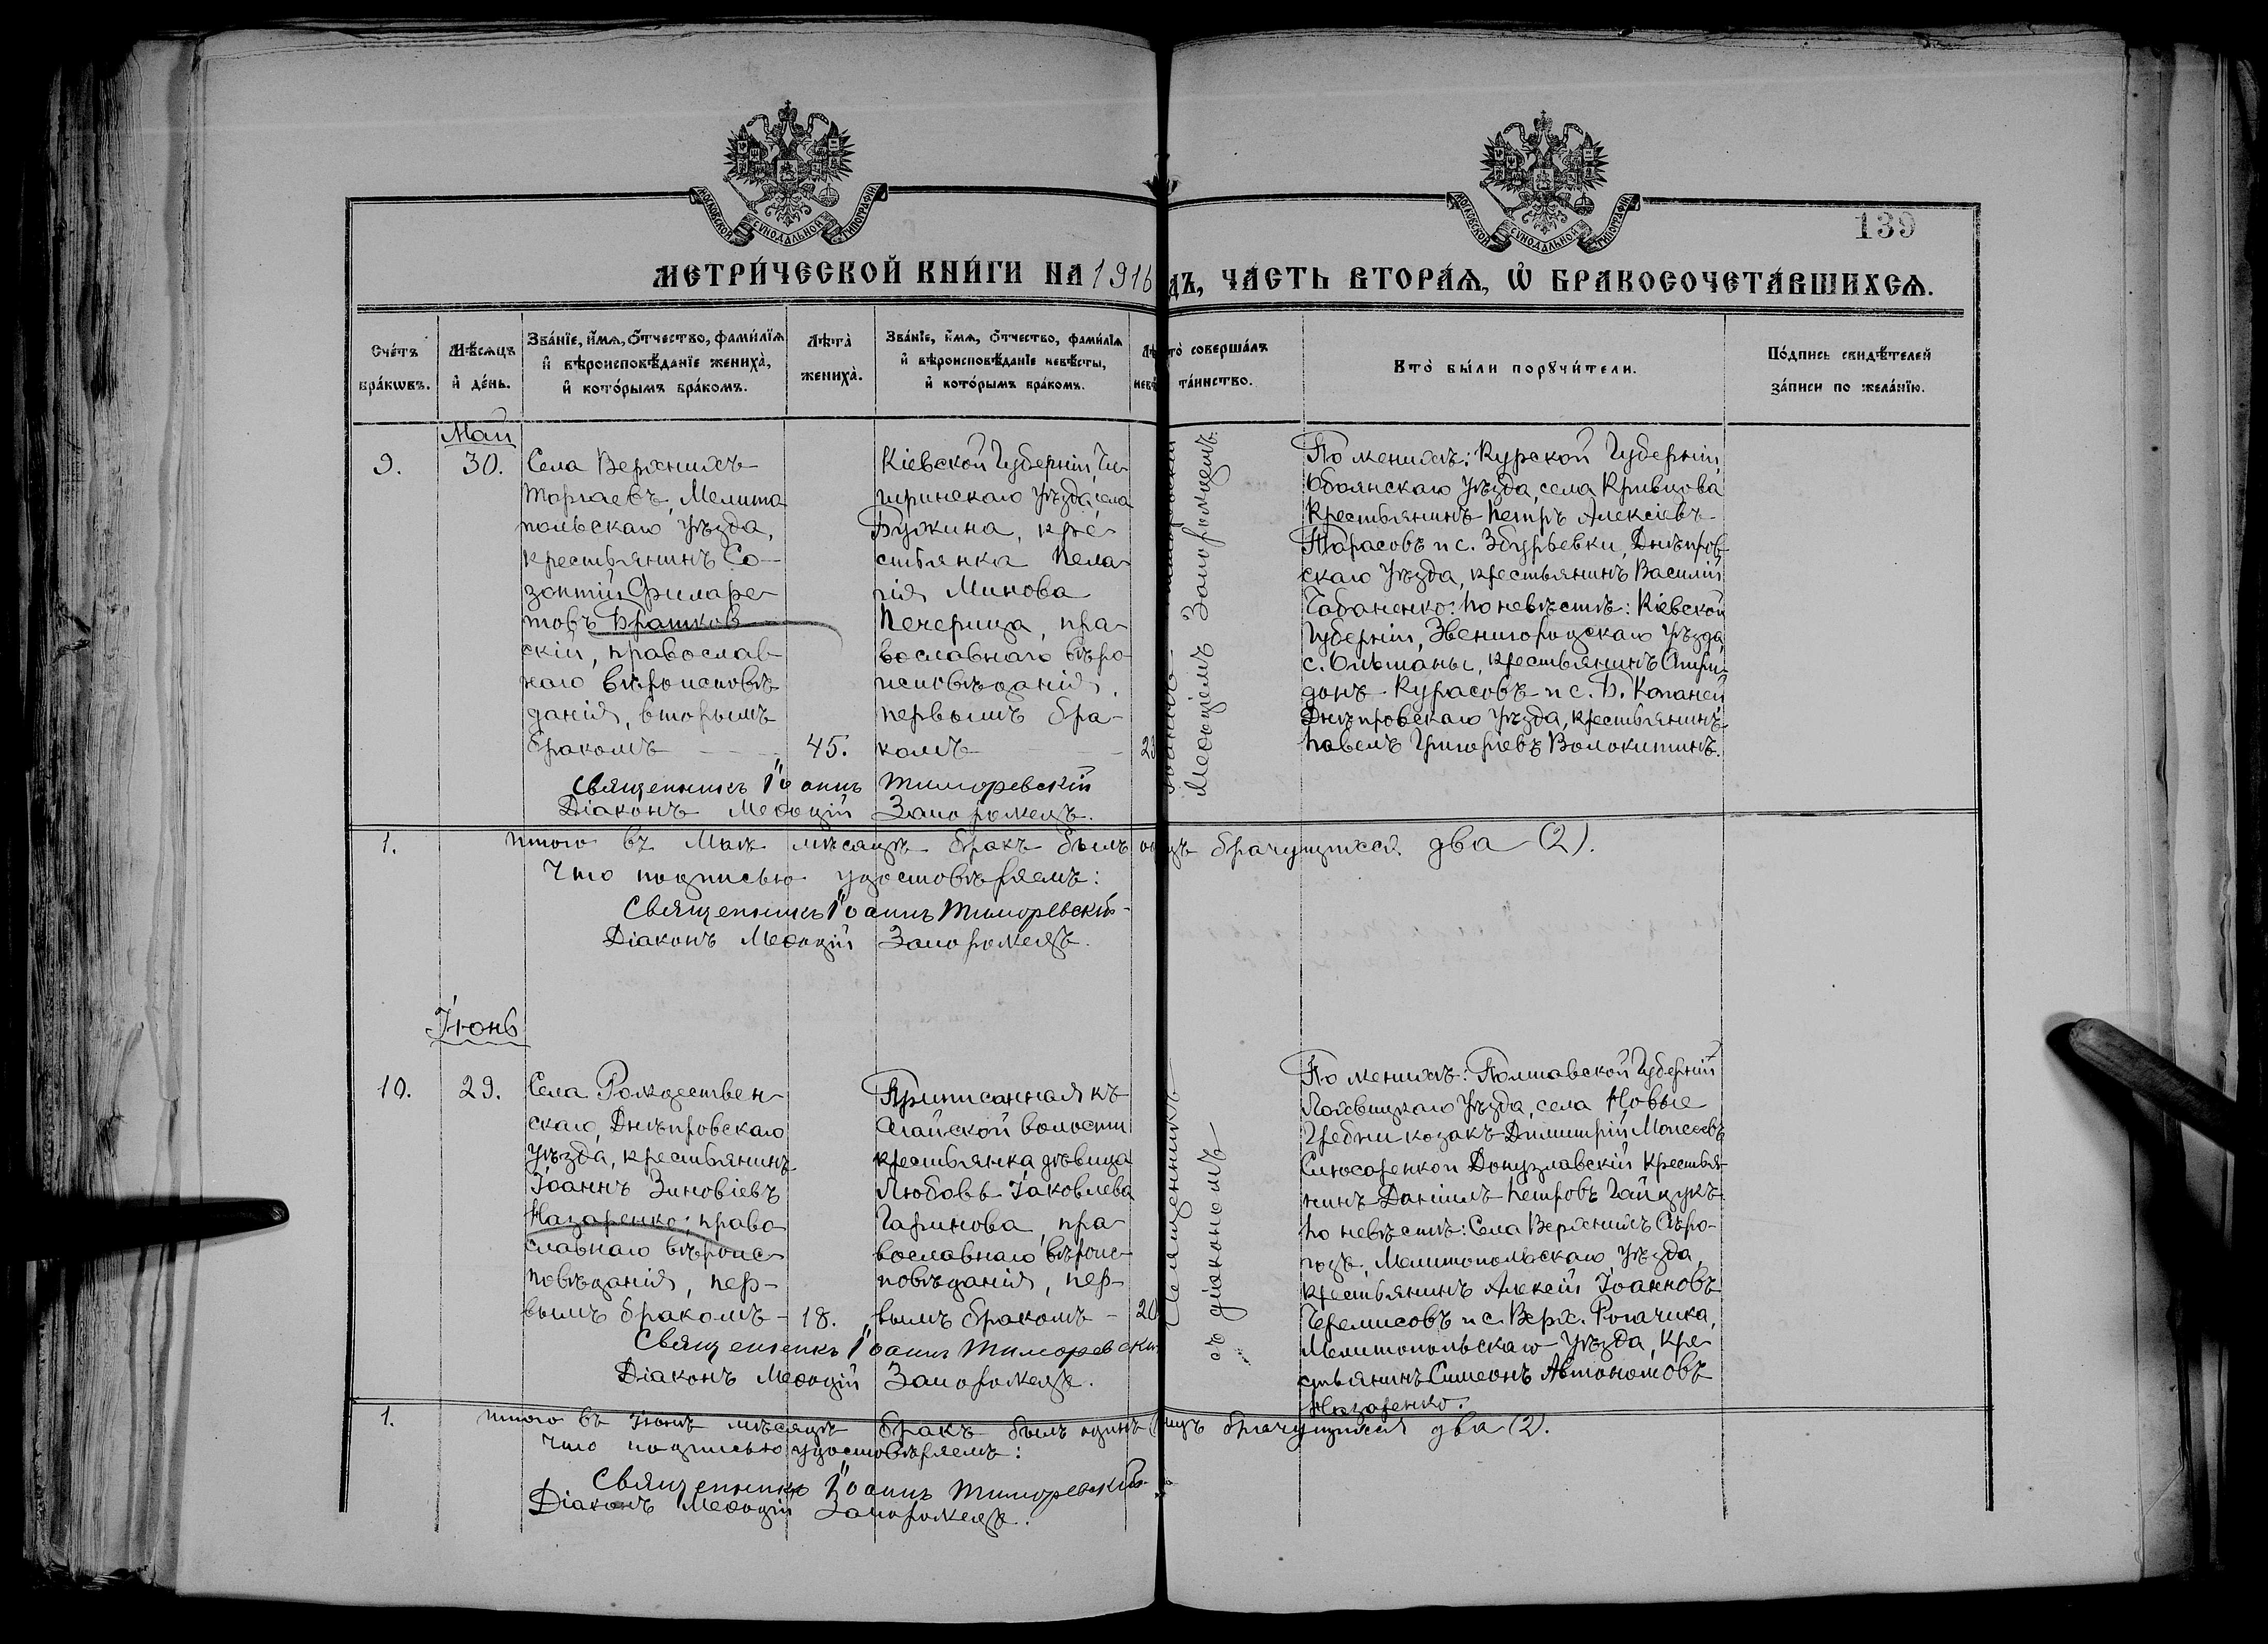 МОСКОВСКОЙ СѴНОДАЛЬНОЙ ТИПОГРАФІИ
МОСКОВСКОЙ СѴНОДАЛЬНОЙ ТИПОГРАФІИ
139
МЕТРИ́ЧЕСКОЙ КНИ́ГИ НА 1916
ДЪ, ЧА́СТЬ ВТОРА́Ѧ, Ѡ҆ БРАКОСОЧЕТА́ВШИХСѦ.
Сче́тъ
бра́кѡвъ.
Мѣ́сѧцъ
и҆ де́нь.
Зва́нїе, и҆́мѧ, ѻ҆́тчество, фами́лїѧ
и҆ вѣроисповѣ́данїе жениха̀,
и҆ кото́рымъ бра́комъ.
Лѣ́та̀
жениха̀.
Зва́нїе, и҆́мѧ, ѻ҆́тчество, фами́лїѧ
и҆ вѣроисповѣ́данїе невѣ́сты,
и҆ кото́рымъ бра́комъ.
Лѣ
невѣ
то̀ соверша́лъ
та́инство.
Кто̀ бы́ли порꙋчи́тели.
По́дпись свидѣ́телей
за́писи по жела́нїю.
Май
9.
30.
Села Верхнихъ
Торгаевъ, Мелито
польскаго уѣзда,
крестьянинъ Со-
зонтій Филаре-
товъ Братков-
скій, православ-
наго вѣроисповѣ
данія, вторымъ
бракомъ
45.
Кіевской Губерніи, Чи-
гиринскаго уѣзда, села
Бужина, кре-
стьянка Пела-
гія Минова
Печерица, пра-
вославнаго вѣро
исповѣданія,
первымъ бра-
комъ
23
Меѳодіемъ Запорожцемъ.
По женихѣ: Курской Губерніи,
Обоянскаго уѣзда, села Кривцова
крестьянинъ Петръ Алексіевъ
Тарасовъ и с. Збурьевки, Днѣпров-
скаго уѣзда, крестьянинъ Василій
Чабаненко: по невѣстѣ: Кіевской
Губерніи, Звенигородскаго уѣзда,
с. Ольшаны, крестьянинъ Спири-
донъ Курасовъ и с. Б. Копаней
Днѣпровскаго уѣзда, крестьянинъ
Павелъ Григорьевъ Волокитинъ.
Священникъ Іоаннъ Тиморевскій
Діаконъ Меѳодій Запорожецъ.
1.
Итого въ Маѣ мѣсяцѣ бракъ былъ
брачущихся два (2).
Что подписью удостовѣряемъ:
Священникъ Іоаннъ Тиморевскій
Діаконъ Меѳодій Запорожецъ.
Іюнь
10.
29.
Села Рождествен-
скаго, Днѣпровскаго
уѣзда, крестьянинъ
Іоаннъ Зиновіевъ
Назаренко; право
славнаго вѣроис-
повѣданія, пер-
вымъ бракомъ -
18.
Приписанная къ
Агайской волости
крестьянка дѣвица
Любовь Іаковлева
Гаринова, пра-
вославнаго вѣроис-
повѣданія, пер-
вымъ бракомъ -
20
Священникъ
съ діакономъ
По женихѣ: Полтавской Губерніи
Лохвицкаго уѣзда, села Новые
Гребни козакъ Димитрій Моисеевъ
Слюсаренко и Донузлавскій крестья-
нинъ Даніилъ Петровъ Гайдукъ.
По невѣстѣ: Села Верхнихъ Сѣро-
гозъ, Мелитопольскаго уѣзда,
крестьянинъ Алексій Іоанновъ
Черемисовъ и с. Верх. Рогачика,
Мелитопольскаго уѣзда, кре-
стьянинъ Симеонъ Автономовъ
Назаренко.
Священникъ Іоаннъ Тиморевскій
Діаконъ Меѳодій Запорожецъ.
1.
Итого въ Іюнѣ мѣсяцѣ бракъ былъ одинъ
брачущихся два (2).
Что подписью удостовѣряемъ:
Священникъ Іоаннъ Тиморевскій
Діаконъ Меѳодій Запорожецъ.